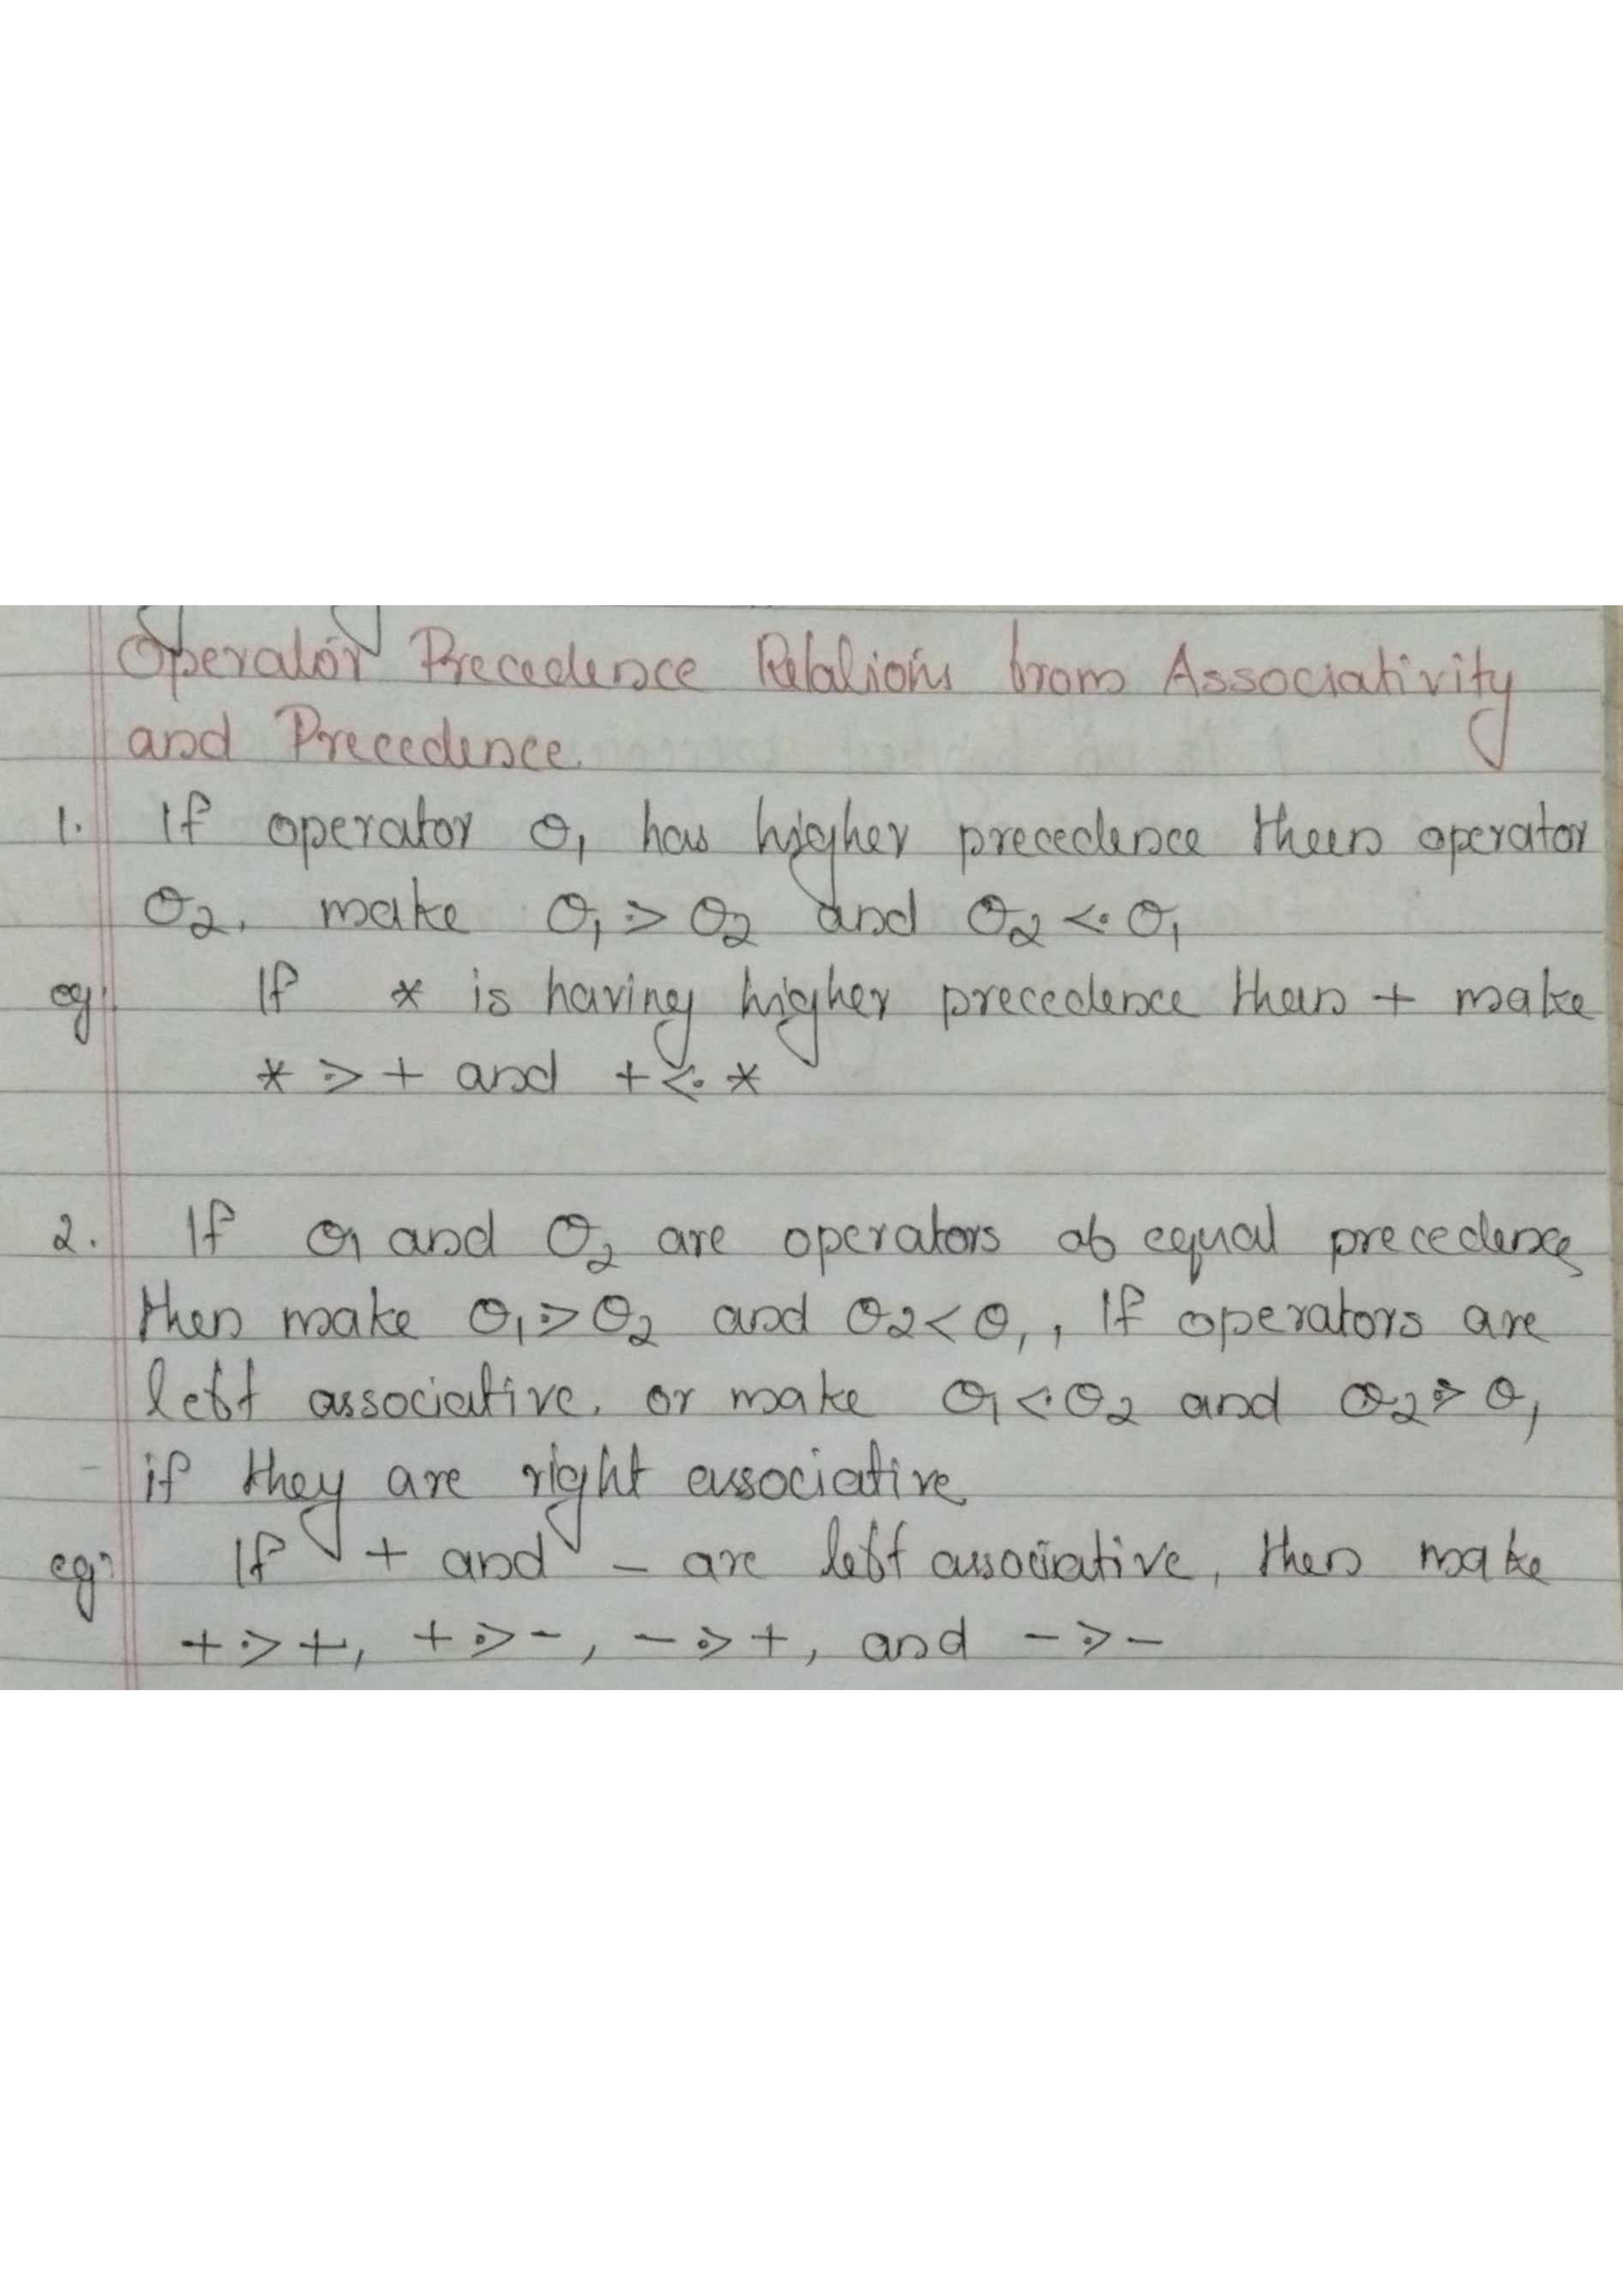 Operator Precedence Relations from Associativity
and Precedence.
1. If operator θ₁ has higher precedence then operator
θ₂. make θ₁ ⋗ θ₂ and θ₂ ⋖ θ₁
eg: If * is having higher precedence then + make
* ⋗ + and + ⋖ *
2. If θ₁ and θ₂ are operators of equal precedence,
then make θ₁ ⋗ θ₂ and θ₂ < θ₁, If operators are
left associative. or make θ₁ ⋖ θ₂ and θ₂ ⋗ θ₁
if they are right associative.
eg: If + and - are left associative, then make
+ ⋗ +, + ⋗ -, - ⋗ +, and - ⋗ -